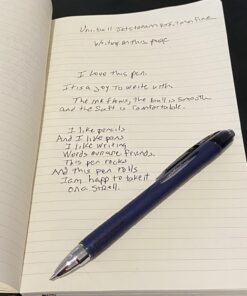 Uni-ball Jetstream RX7 1mm Fine
Writing on this page
I love this pen
It is a joy to write with
The ink flows, the ball is smooth
and the Saft is comfortable.
I like pencils
And I like pens
I like writing
Words our are friends.
This pen rocks
And this pen rolls
I am happ to take it
on a stroll.